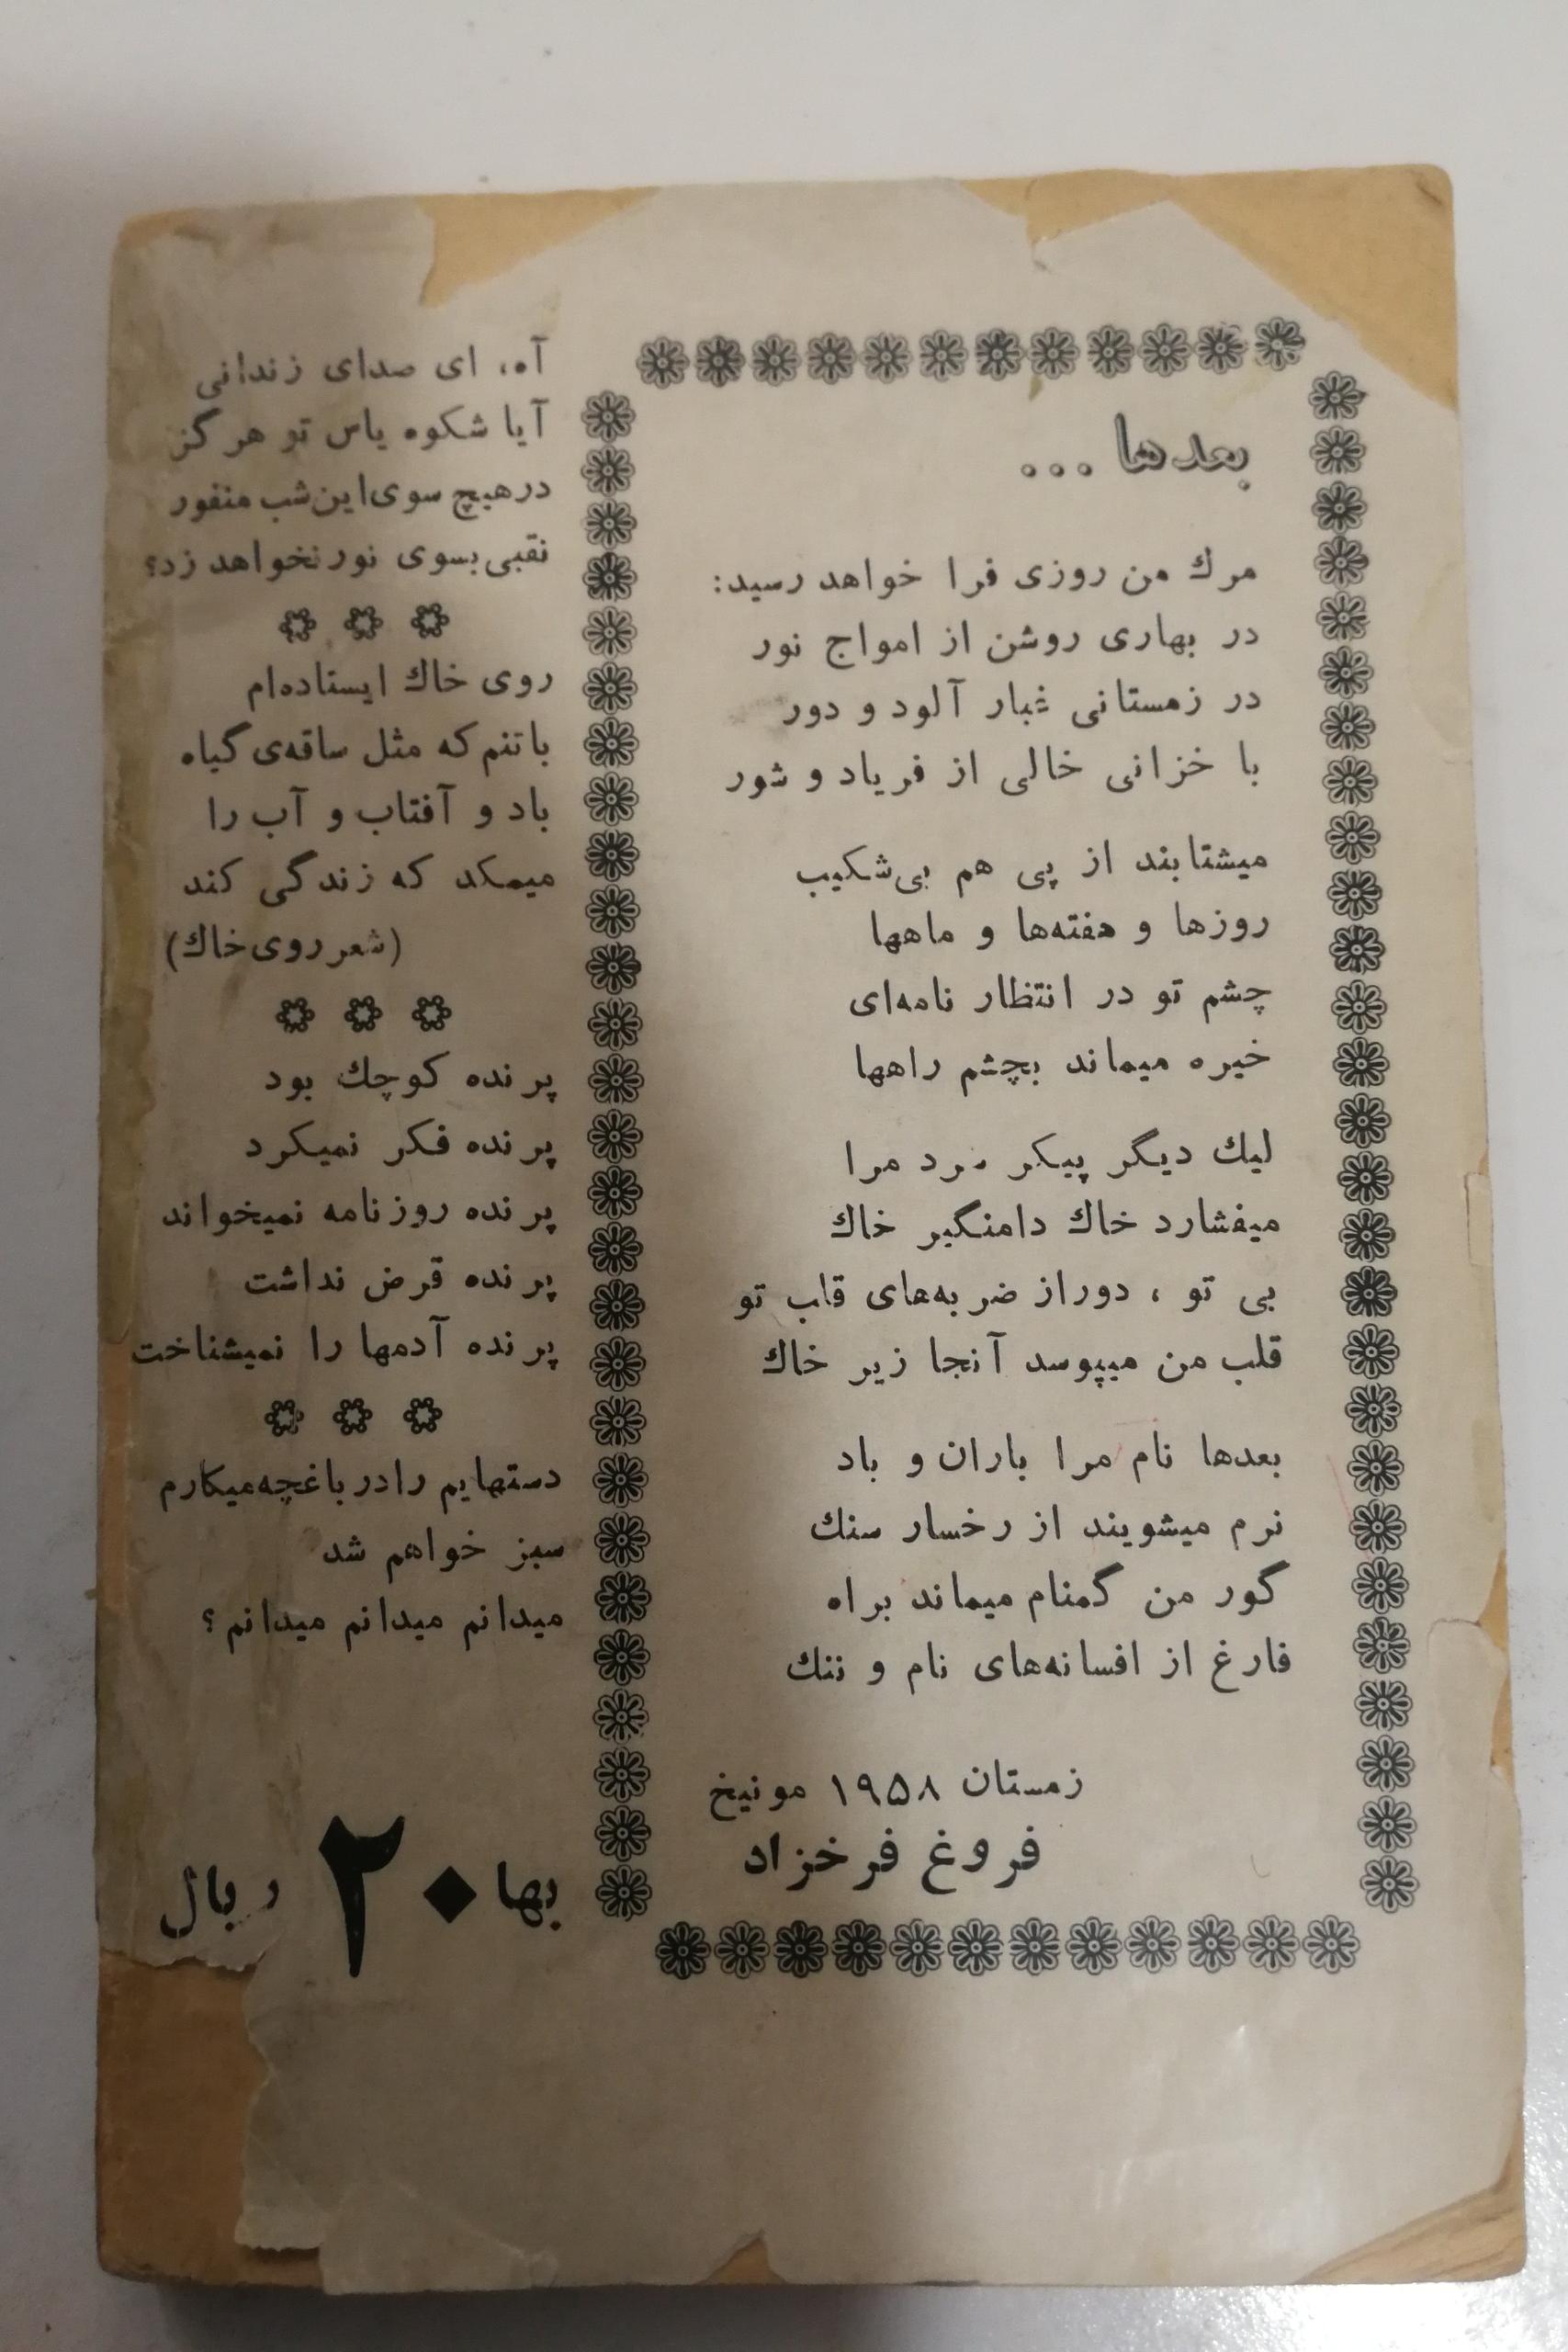 بعدها ...
مرك من روزی فرا خواهد رسید:
در بهاری روشن از امواج نور
در زمستانی غبار آلود و دور
با خزانی خالی از فریاد و شور
میشتابند از پی هم بی‌شکیب
روزها و هفته‌ها و ماهها
چشم تو در انتظار نامه‌ای
خیره میماند بچشم راهها
لیك دیگر پیکر سرد مرا
میفشارد خاك دامنگیر خاك
بی تو ، دور از ضربه‌های قلب تو
قلب من میپوسد آنجا زیر خاك
بعدها نام مرا باران و باد
نرم میشویند از رخسار سنك
گور من گمنام میماند براه
فارغ از افسانه‌های نام و ننك
زمستان ۱۹۵۸ مونیخ
فروغ فرخزاد
آه، ای صدای زندانی
آیا شکوه یاس تو هرگز
درهیچ سوی این شب منفور
نقبی بسوی نور نخواهد زد؟
روی خاك ایستاده‌ام
باتنم که مثل ساقه‌ی گیاه
باد و آفتاب و آب را
میمکد که زندگی کند
(شعر روی خاك)
پرنده کوچك بود
پرنده فکر نمیکرد
پرنده روزنامه نمیخواند
پرنده قرض نداشت
پرنده آدمها را نمیشناخت
دستهایم را در باغچه میکارم
سبز خواهم شد
میدانم میدانم میدانم ؟
بها ۲۰ ریال